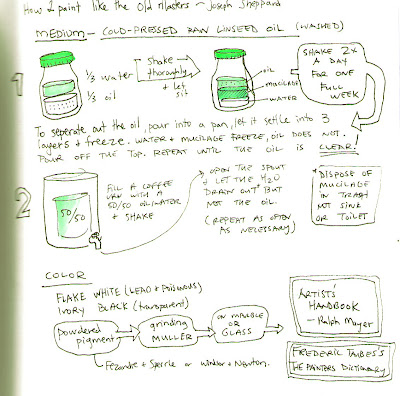 How I paint like the Old Masters ~ Joseph Sheppard
MEDIUM - COLD-PRESSED RAW LINSEED OIL (WASHED)
1
1/3 water
1/3 oil
Shake
thoroughly
+ let
sit
OIL
MUCILAGE
WATER
SHAKE 2x
A DAY
FOR ONE
FULL
WEEK
To seperate out the oil, pour into a pan, let it settle into 3
layers + freeze. WATER + MUCILAGE FREEZE, OIL DOES NOT.
POUR OFF THE TOP. REPEAT UNTIL THE OIL IS CLEAR!
2
50/50
FILL A COFFEE
URN WITH A
50/50 OIL/WATER
+ SHAKE
OPEN THE SPOUT
+ LET THE H2O
DRAIN OUT BUT
NOT THE OIL.
(REPEAT AS OFTEN
AS NECESSARY)
DISPOSE OF
MUCILAGE
IN TRASH
NOT SINK
OR TOILET
COLOR
FLAKE WHITE (LEAD + POISONOUS)
IVORY BLACK (transparent)
powdered
pigment
grinding
MULLER
ON MARBLE
OR
GLASS
Fezandie + Sperrle or Windsor + Newton.
ARTISTS
HANDBOOK
- Ralph Mayer
FREDERIC TAUBES'S
THE PAINTERS DICTIONARY